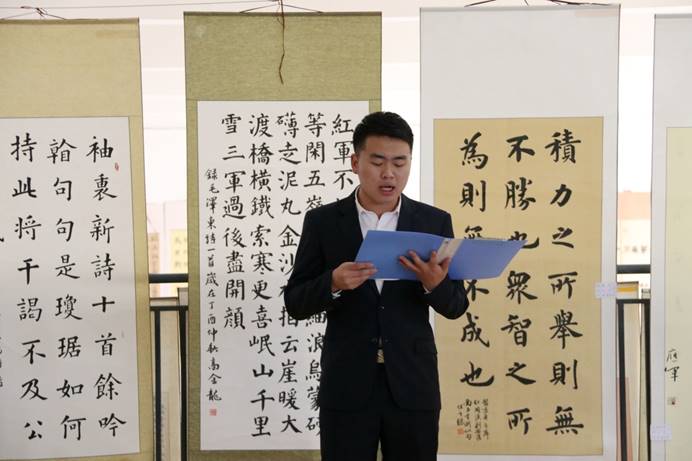 應軍
積力之所舉則無
不勝也衆智之所
為則無不成也
紅軍不
等閑五嶺 細浪烏蒙磅
礴走泥丸金沙 拍云崖暖大
渡橋橫鐵索寒更喜岷山千里
雪三軍過後盡開顏
錄毛澤東詩一首歲在丁酉仲秋高金龍
袖裏新詩十首餘吟
翰句句是瓊琚如何
持此將干謁不及公